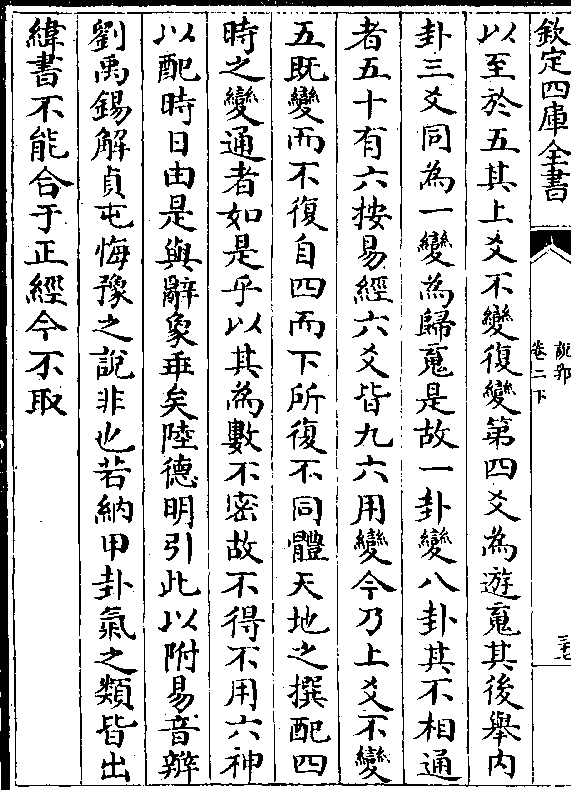 欽定四庫全書
說郛
卷二下
以至於五其上爻不變復變第四爻為遊䰟其後舉内
卦三爻同為一變為歸䰟是故一卦變八卦其不相通
者五十有六按易經六爻皆九六用變今乃上爻不變
五既變而不復自四而下所復不同體天地之撰配四
時之變通者如是乎以其為數不密故不得不用六神
以配時日由是與辭象乖矣陸德明引此以附易音辨
劉禹錫解貞屯悔豫之說非也若納甲卦氣之類皆出
緯書不能合于正經今不取